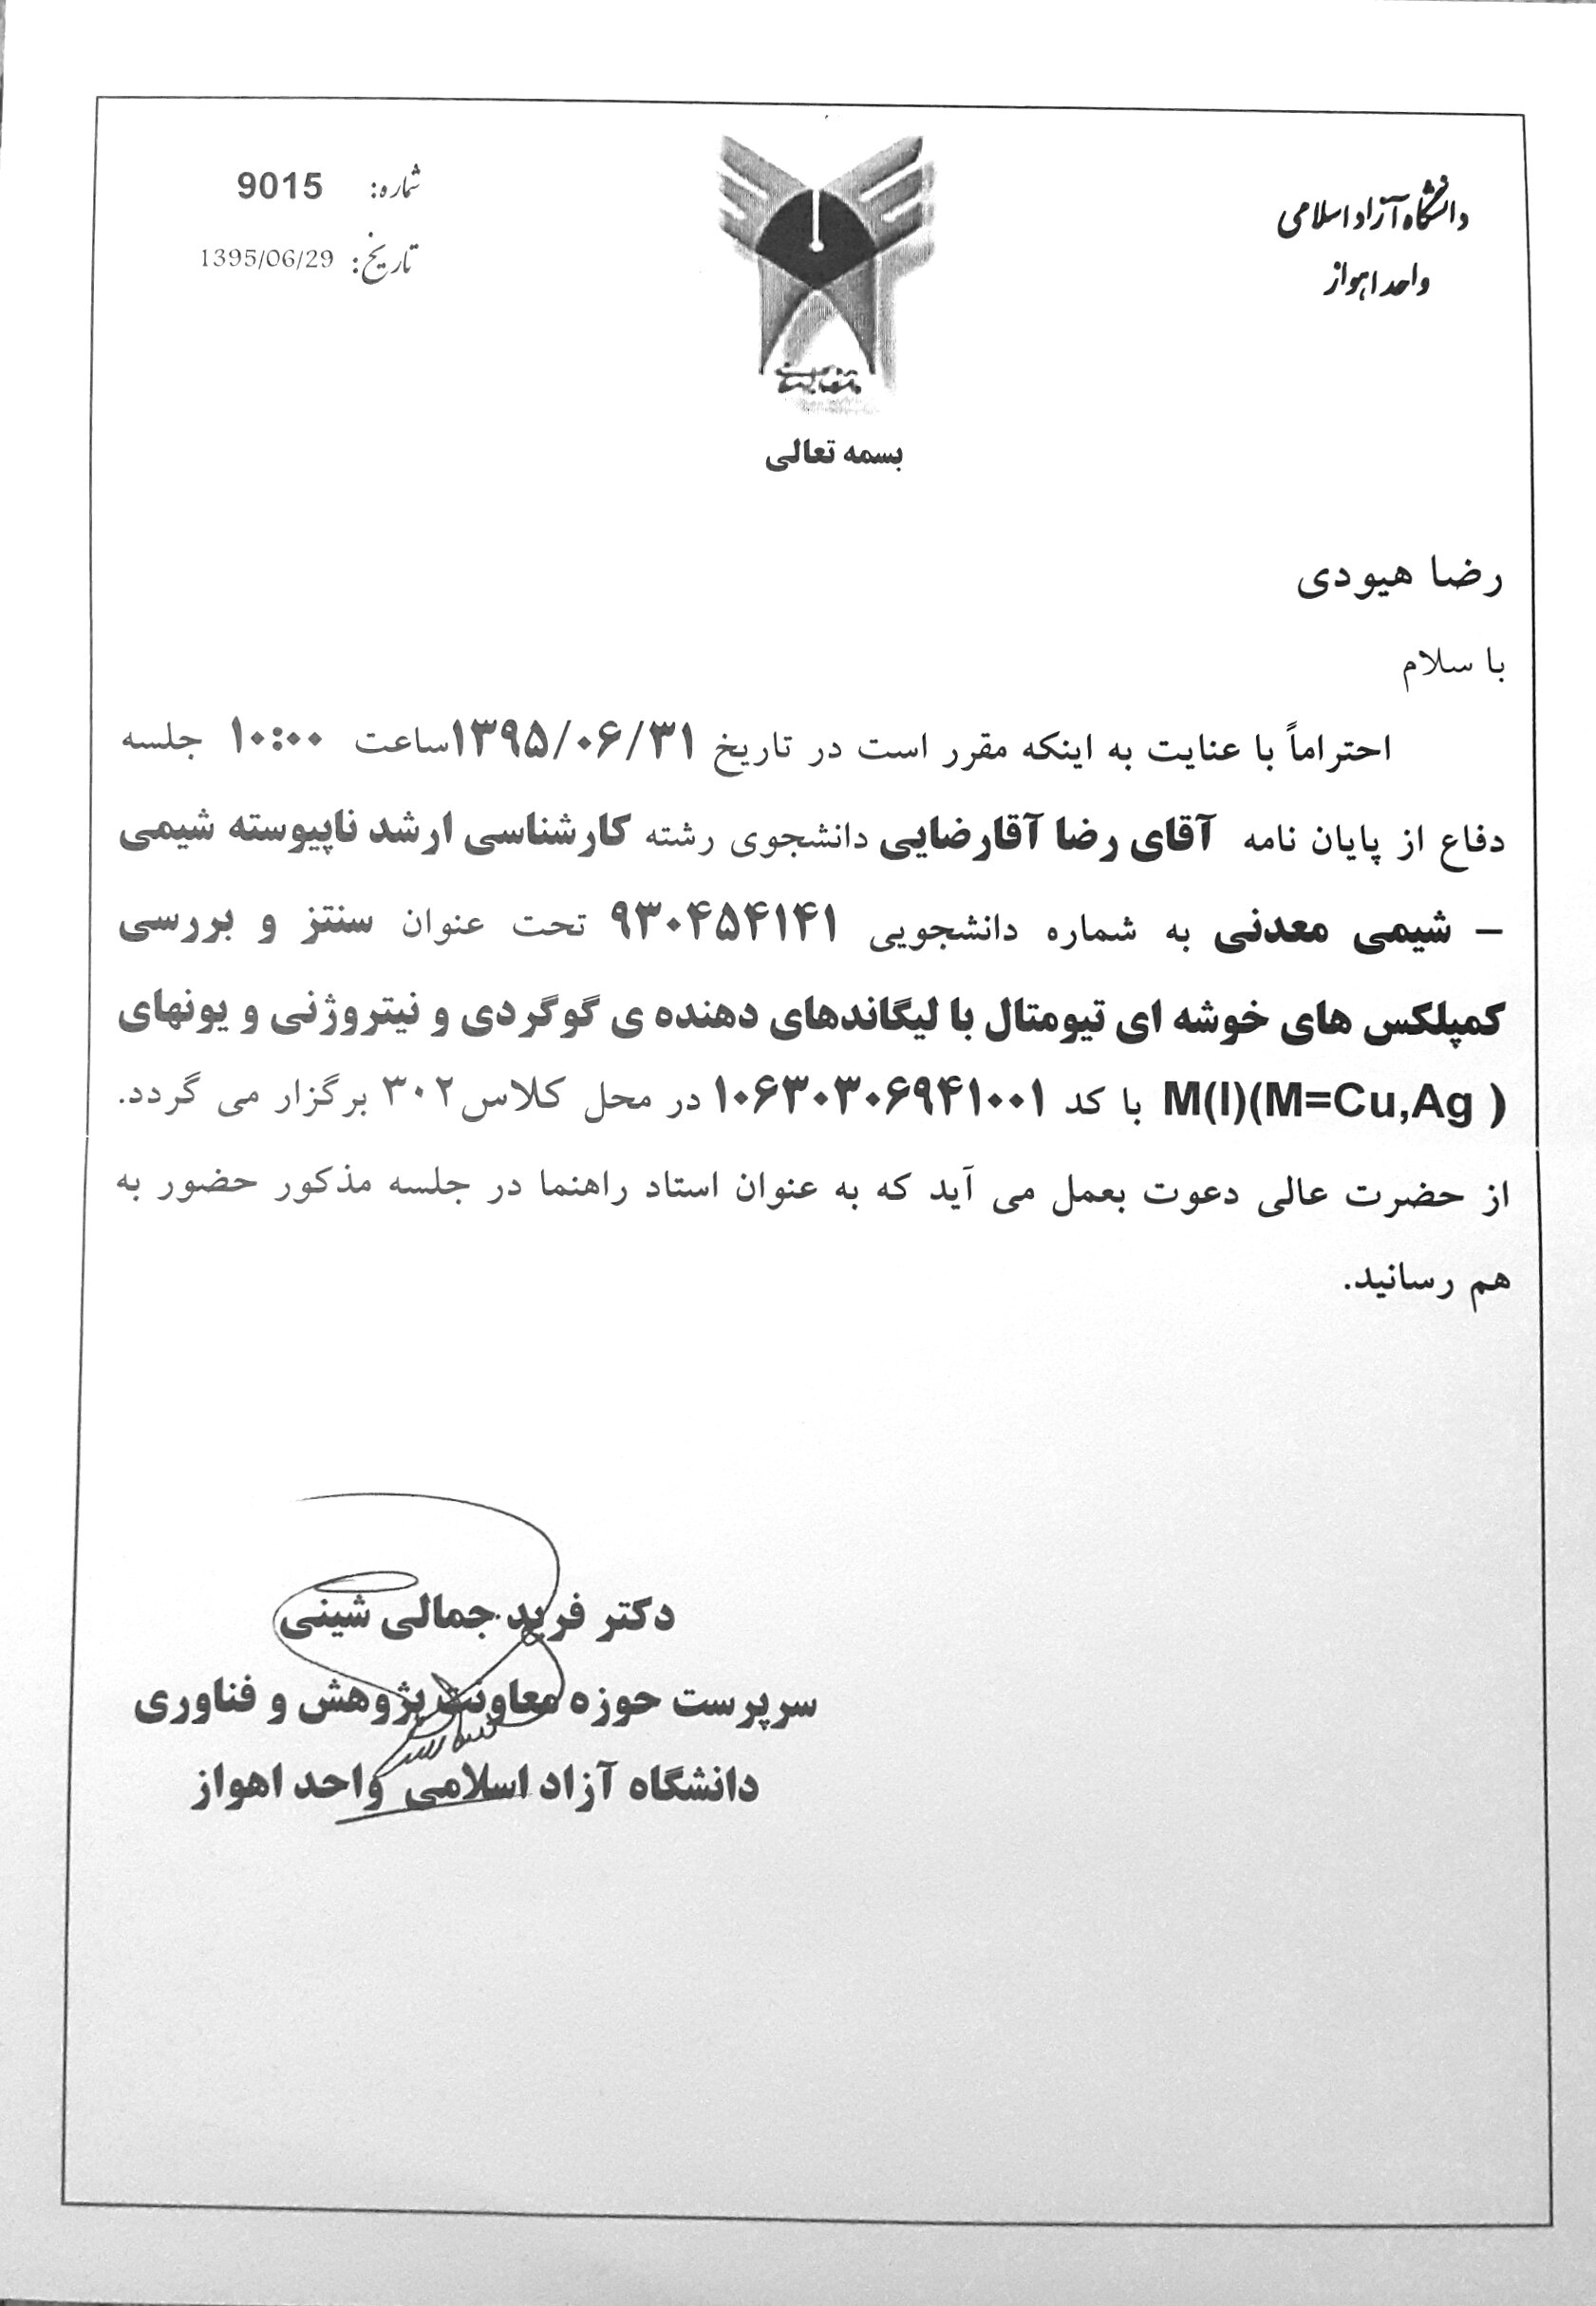 دانشگاه آزاد اسلامی
واحد اهواز
شماره: 9015
تاریخ: 1395/06/29
بسمه تعالی
رضا هیودی
با سلام
احتراماً با عنایت به اینکه مقرر است در تاریخ ۱۳۹۵/۰۶/۳۱ساعت ۱۰:۰۰ جلسه
دفاع از پایان نامه آقای رضا آقارضایی دانشجوی رشته کارشناسی ارشد ناپیوسته شیمی
– شیمی معدنی به شماره دانشجویی ۹۳۰۴۵۴۱۴۱ تحت عنوان سنتز و بررسی
کمپلکس های خوشه ای تیومتال با لیگاندهای دهنده ی گوگردی و نیتروژنی و یونهای
M(I)(M=Cu,Ag ) با کد ۱۰۶۳۰۳۰۶۹۴۱۰۰۱ در محل کلاس۳۰۲ برگزار می گردد.
از حضرت عالی دعوت بعمل می آید که به عنوان استاد راهنما در جلسه مذکور حضور به
هم رسانید.
دکتر فرید جمالی شینی
سرپرست حوزه معاونت پژوهش و فناوری
دانشگاه آزاد اسلامی واحد اهواز